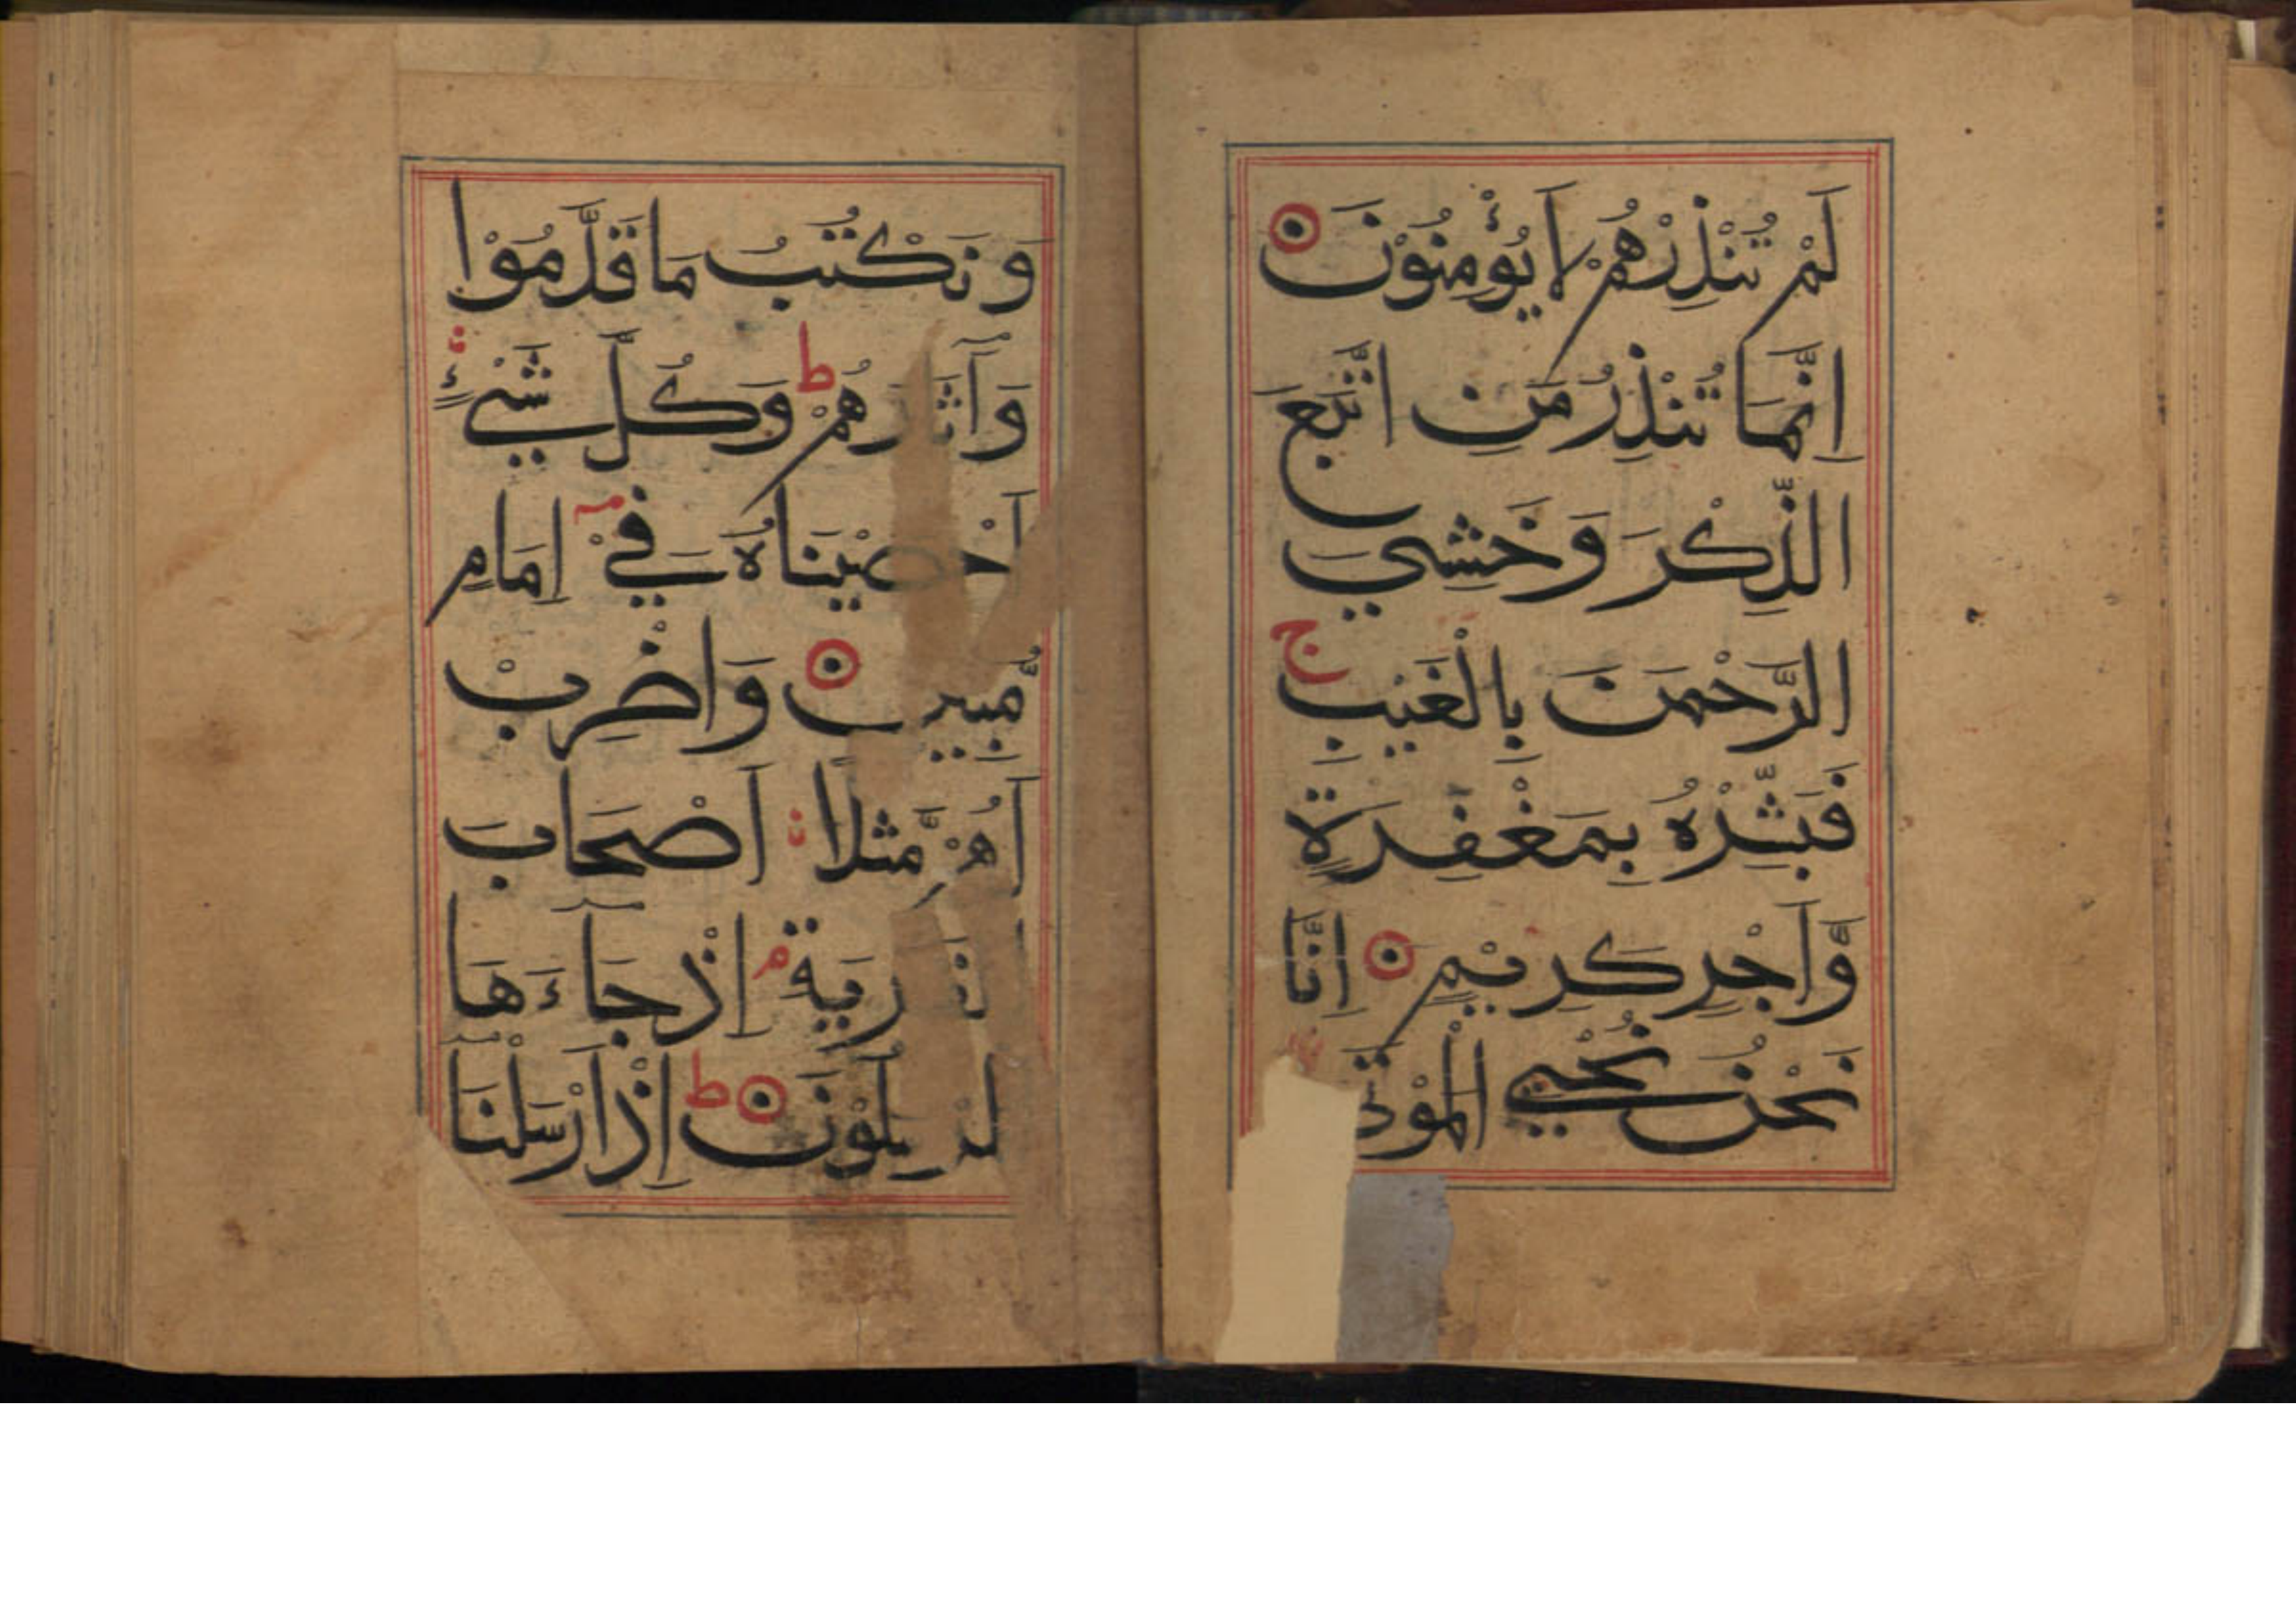 لَمْ تُنْذِرْهُمْ لَا يُؤْمِنُوْنَ
اِنَّمَا تُنْذِرُ مَنِ اتَّبَعَ
الذِّكْرَ وَخَشِيَ
الرَّحْمٰنَ بِالْغَيْبِ ج
فَبَشِّرْهُ بِمَغْفِرَةٍ
وَّاَجْرٍ كَرِيْمٍ اِنَّا
نَحْنُ نُحْيِي الْمَوْتٰى
وَنَكْتُبُ مَا قَدَّمُوْا
وَآثَارَهُمْ ط وَكُلَّ شَيْءٍ
اَحْصَيْنَاهُ فِيْ اِمَامٍ
مُّبِيْنٍ وَاضْرِبْ
لَهُمْ مَّثَلًا اَصْحَابَ
الْقَرْيَةِ م اِذْ جَآءَهَا
الْمُرْسَلُوْنَ ط اِذْ اَرْسَلْنَا